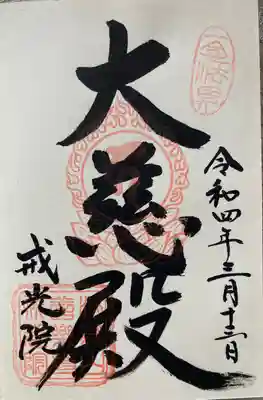 令和四年三月十三日
大慈殿
戒光院